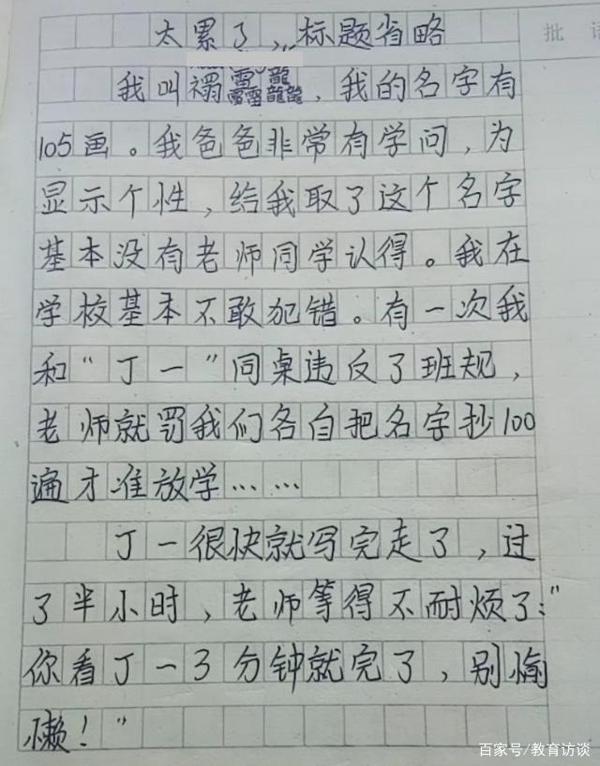 太累了,,,标题省略
批语
我叫禤靐龘，我的名字有
105画。我爸爸非常有学问，为
显示个性，给我取了这个名字
基本没有老师同学认得。我在
学校基本不敢犯错。有一次我
和“丁一”同桌违反了班规，
老师就罚我们各自把名字抄100
遍才准放学……
丁一很快就写完走了，过
了半小时，老师等得不耐烦了：“
你看丁一3分钟就完了，别愉
懒！”
百家号/教育访谈